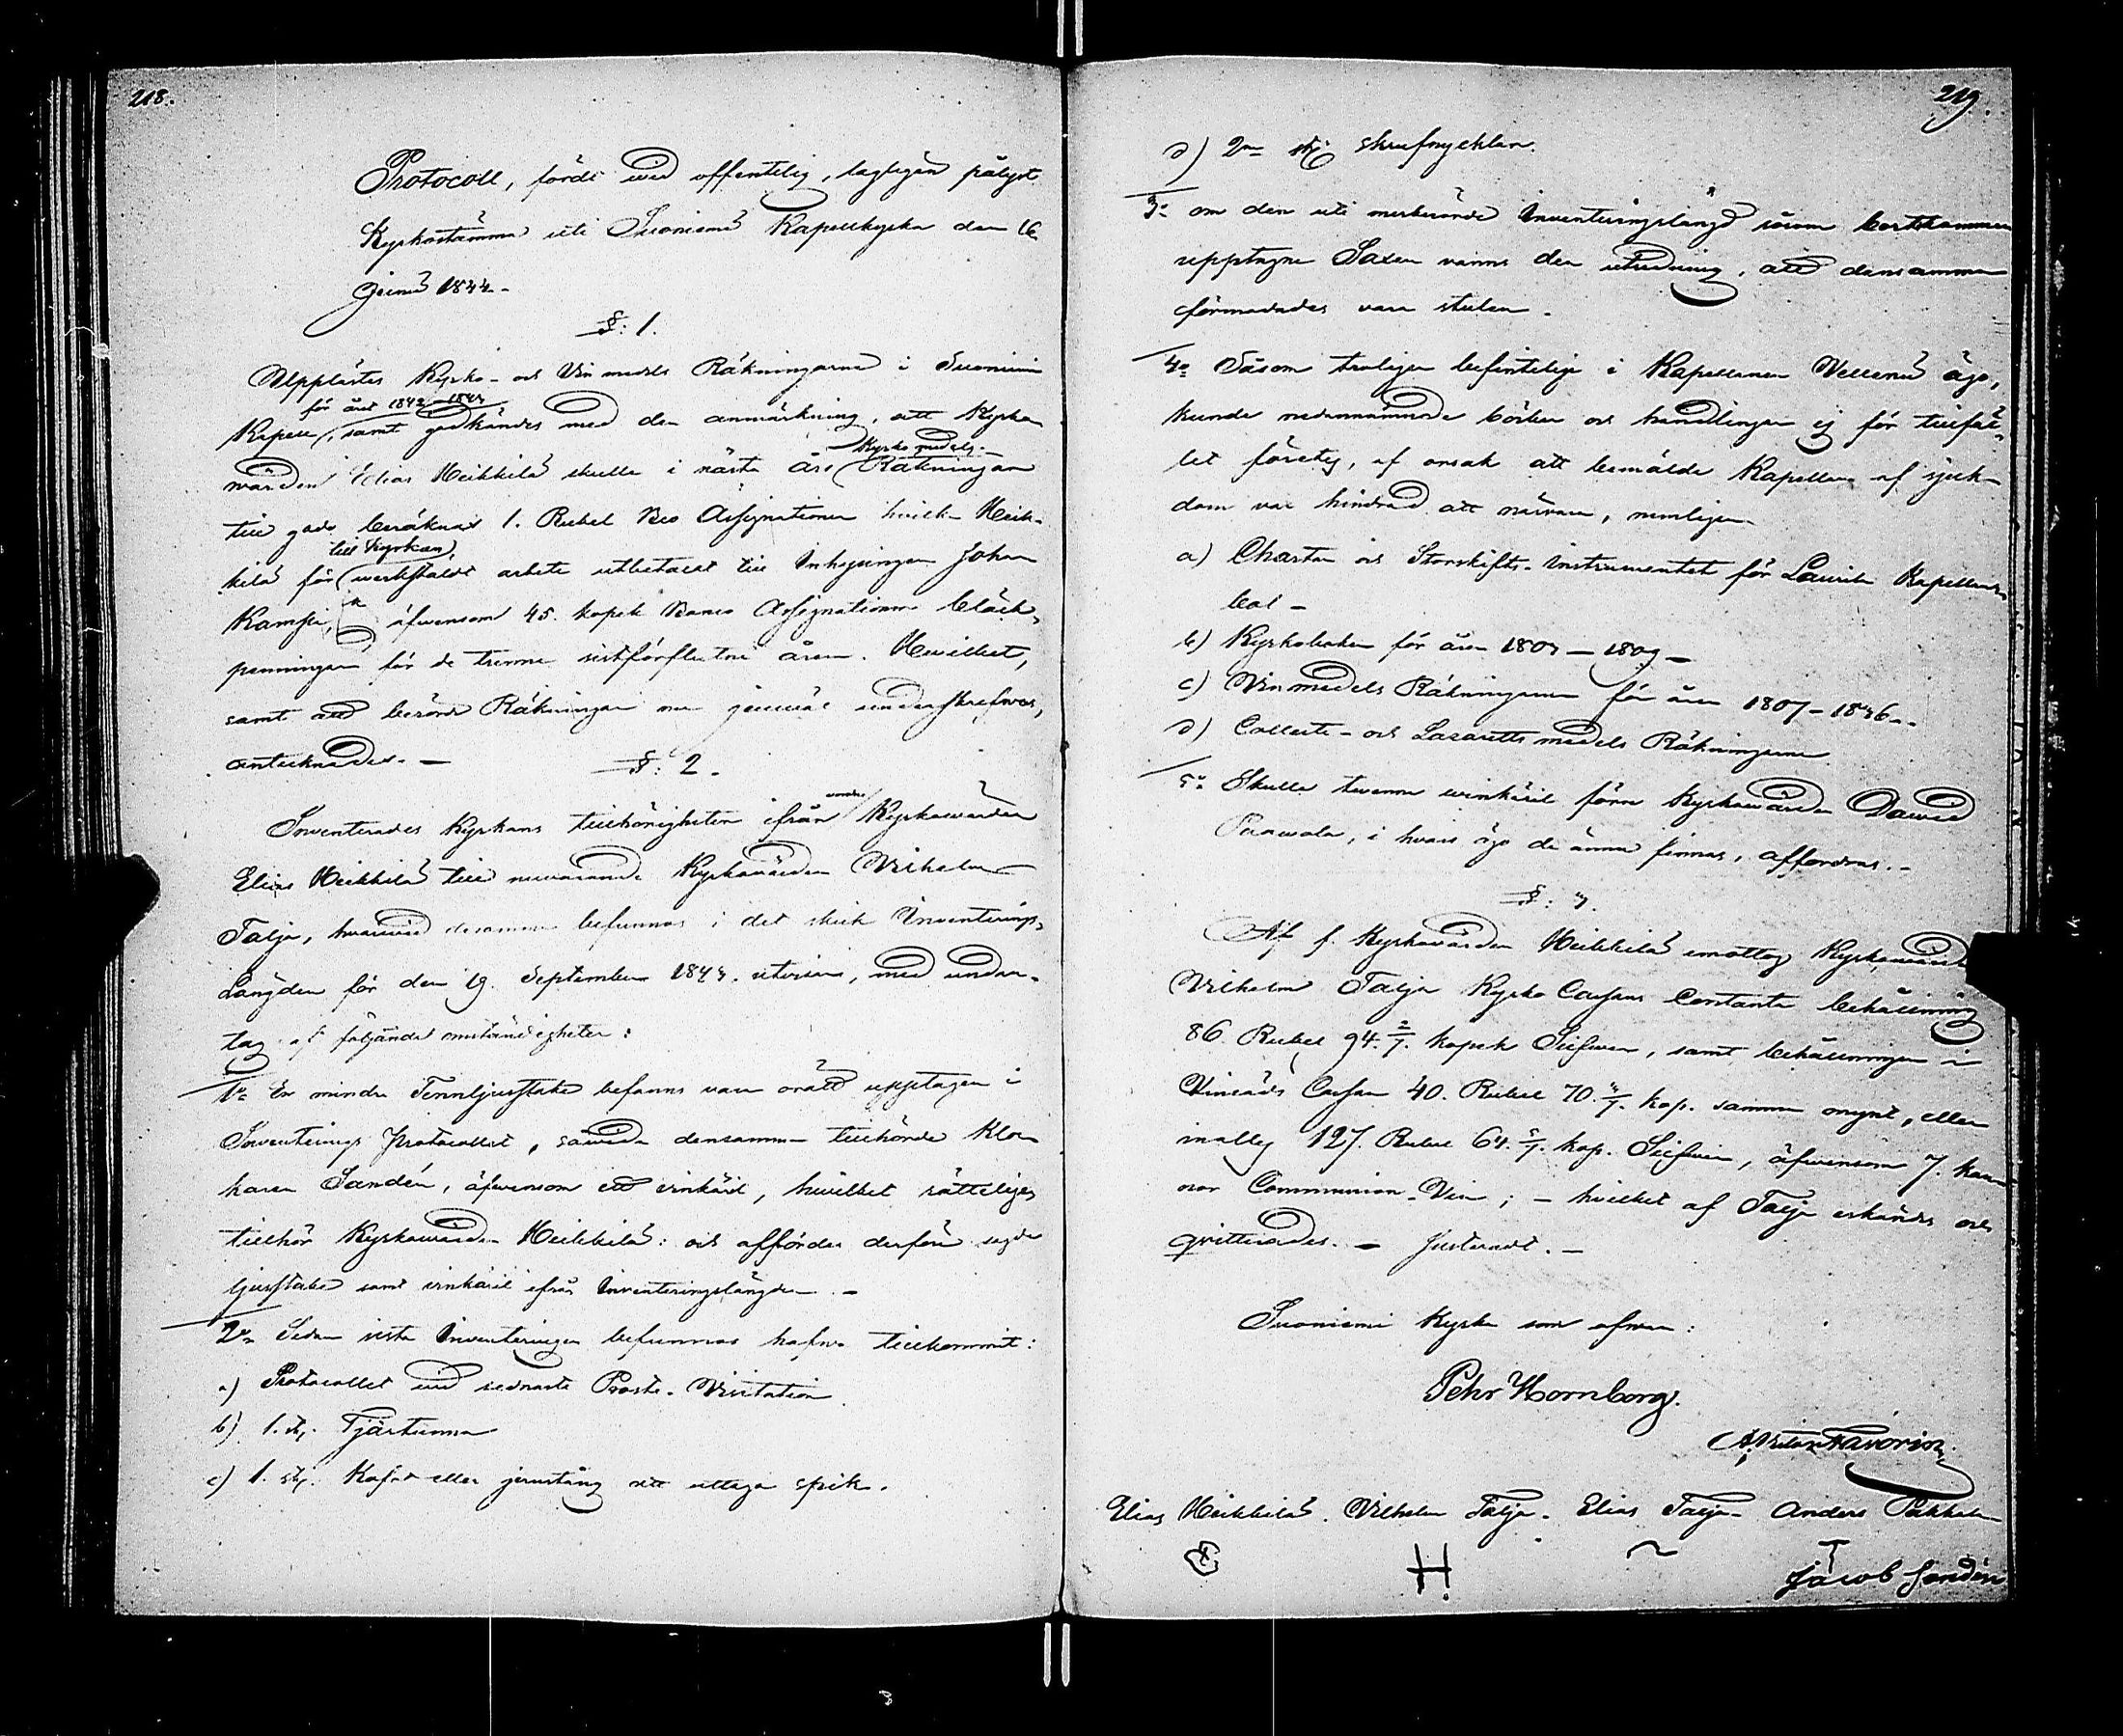 218.
Protocoll, fördt wid offentelig, lagligen pålyst
Kyrkostämma uti Suoniemi Kapellkyrka den 16
Junii 1844.
§: 1.
Upplästes Kyrko- och Vinmedels Räkningarne i Suoniemi
för året 1843-1844
Kapell, samt godkändes med den anmärkning, att Kyrko
wärden Elias Heikkilä skulle i nästa års Kyrkomedels- Räkningar
till godo beräknas 1. Rubel Bco Assignationer hvilka Heik-
kilä för till Kyrkan werkstäldt arbete utbetalat till Inhysingen Johan
Kamppi, äfwensom 45. kopek Banco Assignationer bläck-
penningar för de trenne sistförflutne åren. Hwilket,
samt att berörde Räkningar nu genast underskrefwos,
antecknades. —
§: 2.
Inventerades Kyrkans tillhörigheter ifrån Kyrkowärden
Elias Heikkilä till nuvarande Kyrkowärden Wilhelm
Talja, hwarwid desamma befunnos i det skick Inventerings-
Längden för den 19. September 1843. utvisar, med undan-
tag af följande omständigheter:
1o En mindre Tennljusstake befanns vara orätt upptagen i
Inventerings Protocollet, såwida densamma tillhörde Kloc-
karen Sandén, äfwensom ett winkäril, hwilket rätteligen
tillhör Kyrkowärden Heikkilä: och affördes derföre sagde
ljusstake samt winkäril ifrån Inventeringslängden. —
2o Sedan sista Inventeringen befunnos hafwa tillkommit:
a) Protocollet wid sednaste Prosts-Visitation
b) 1. st. Tjärtunna
c) 1. st. Kofot eller jernstång att uttaga spik.
219.
d) 2ne st. skrufnycklar.
3o om den uti merberörde Inventeringslängd såsom bortkommen
upptagne Saxen vanns den utredning, att densamma
förmodades vara stulen.
4o Såsom troligen befintelige i Kapellanen Wellenii ägo,
kunde nedannämnde böcker och handlingar ej för tillfäl-
let företes, af orsak att bemälde Kapellan af sjuk-
dom var hindrad att närvara, nemligen
a) Charta och Storskifts-instrumentet för Laurila Kapellans
bol —
b) Kyrkoboken för åren 1803 — 1809 —
c) Vinmedels Räkningarne för åren 1807 — 1836 —
d) Collects- och Lazaretts medels Räkningarne
5o Skulle twenne winkäril förra Kyrkowärden Dawid
Paawola, i hwars ägo de ännu finnas, affordras. —
§: 3.
Af f. Kyrkowärden Heikkilä emottog Kyrkowärden
Wilhelm Talja Kyrko Cassans Contanta behållning
86 Rubel 94. 2/7. kopek Silfwer, samt behållningen i
Vinsäds Cassan 40. Rubel 70. 3/7. kop. samma mynt, eller
inalles 127. Rubel 64. 5/7. kop. Silfwer, äfwensom 7. kan-
nor Communion-Vin; — hvilket af Talja erkändes och
qvitterades. — Justeradt. —
Suoniemi Kyrka som ofwan:
Pehr Hornborg.
Favorin
Elias Heikkilä. Wilhelm Talja. Elias Talja. Anders Pakkala
H
Jacob Sandén